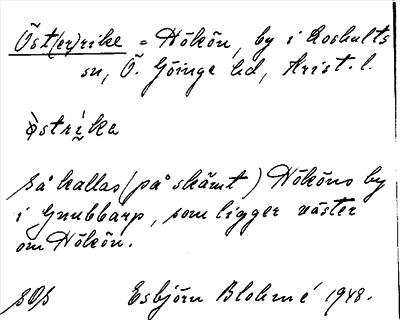 Öst(er)rike = Hökön, by i Loshults
sn, Ö. Göinge hd, Krist. l.
òstrḭ́ka
Så kallas (på skämt) Hököns by
i Gnubbarp, som ligger väster
om Hökön.
SOS Esbjörn Blohmé 1948.